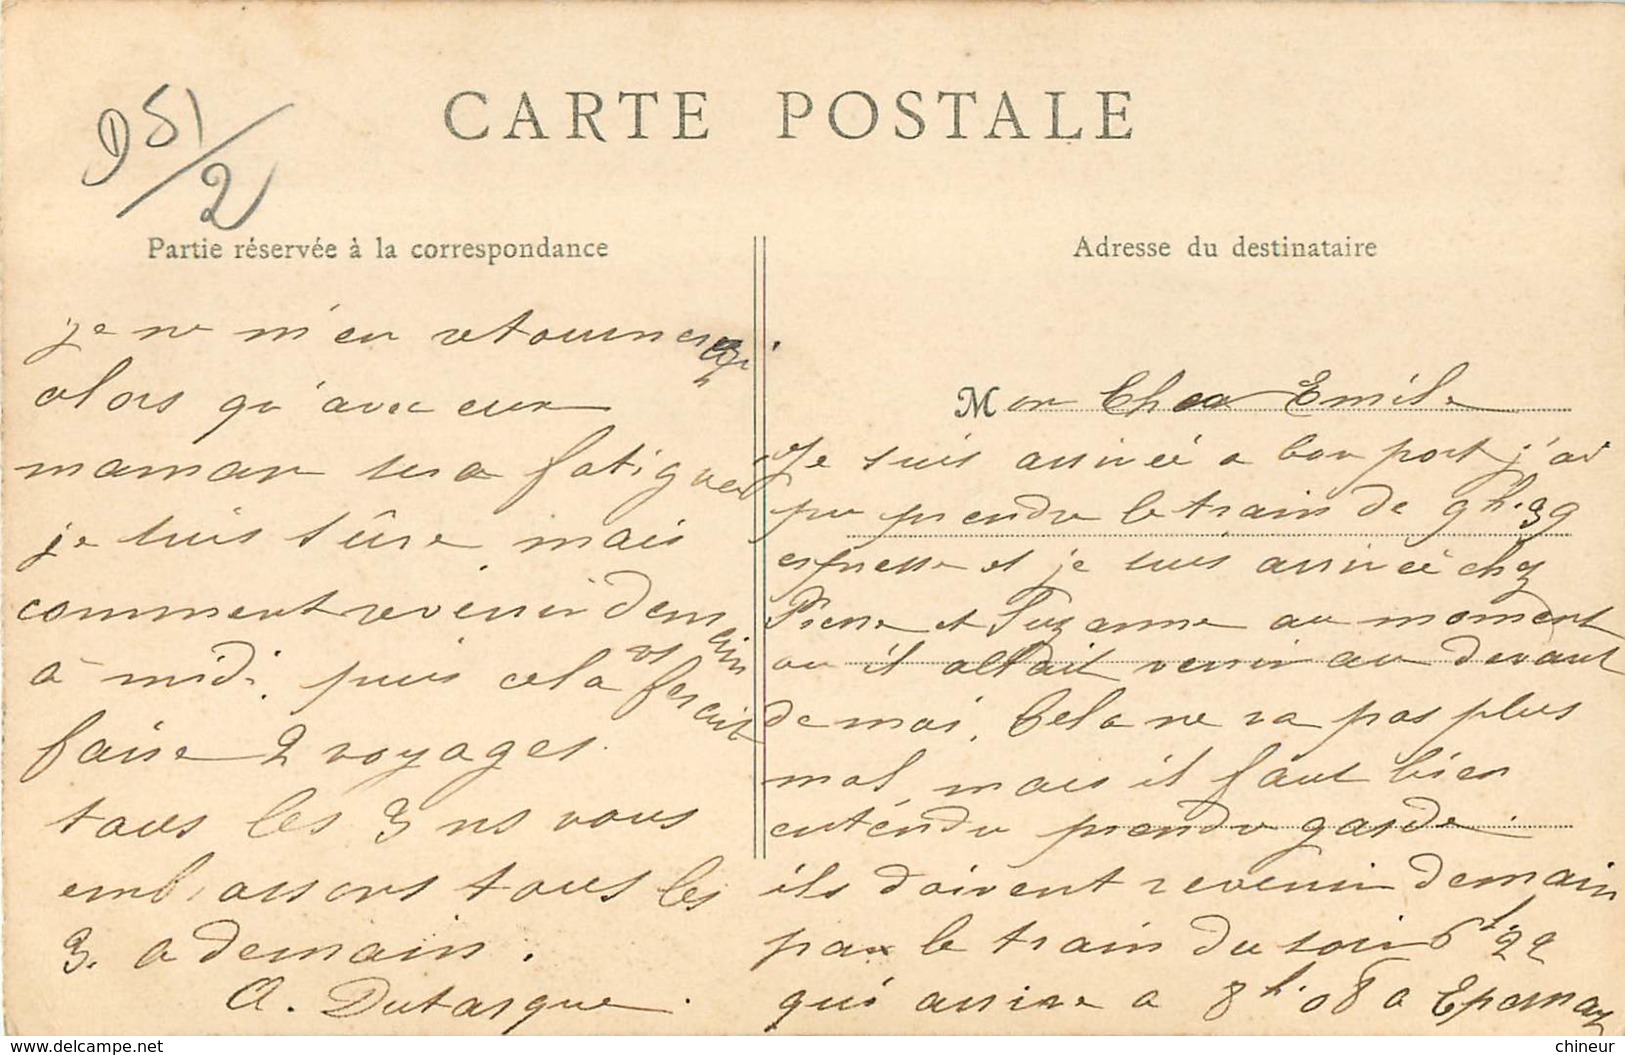 D 51/2
CARTE POSTALE
Partie réservée à la correspondance
Adresse du destinataire
Mon Cher Emile
Je suis arrivée a bon port j'ai
pu prendre le train de 9h.39
express et je suis arrivée chez
Pierre et Suzanne au moment
ou il allait venir au devant
de moi. Cela ne va pas plus
mal mais il faut bien
entendu prendre garde.
ils doivent revenir demain
par le train du soir 6h22
qui arrive a 8h.08 a Epernay
je ne m'en retournerai
alors qu'avec eux
maman sera fatiguée
je suis sûre mais
comment revenir demain
à midi, puis cela vs ferait
faire 2 voyages.
tous les 3 ns vous
embrassons tous les
3. a demain.
A. Dutarque.
chineur
www.delcampe.net